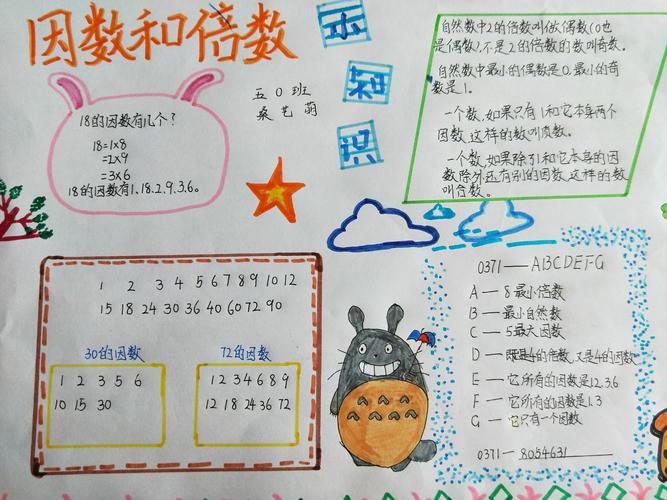 因数和倍数
五〇班
桑艺萌
小知识
18的因数有几个?
18=1x8
=2x9
=3x6
18的因数有1、18、2、9、3、6。
自然数中2的倍数叫做偶数(0也
是偶数),不是2的倍数的数叫奇数。
自然数中最小的偶数是0,最小的奇
数是1。
一个数,如果只有1和它本身两个
因数,这样的数叫质数。
一个数,如果除了1和它本身的因
数除外还有别的因数,这样的数
叫合数。
1 2 3 4 5 6 7 8 9 10 12
15 18 24 30 36 40 60 72 90
30的因数
1 2 3 5 6
10 15 30
72的因数
1 2 3 4 6 8 9
12 18 24 36 72
0371—ABCDEFG
A—8最小倍数
B—最小自然数
C—5最大因数
D—既是4的倍数,又是4的因数
E—它所有的因数是1,2,3,6
F—它所有的因数是1,3
G—它只有一个因数
0371-8054631